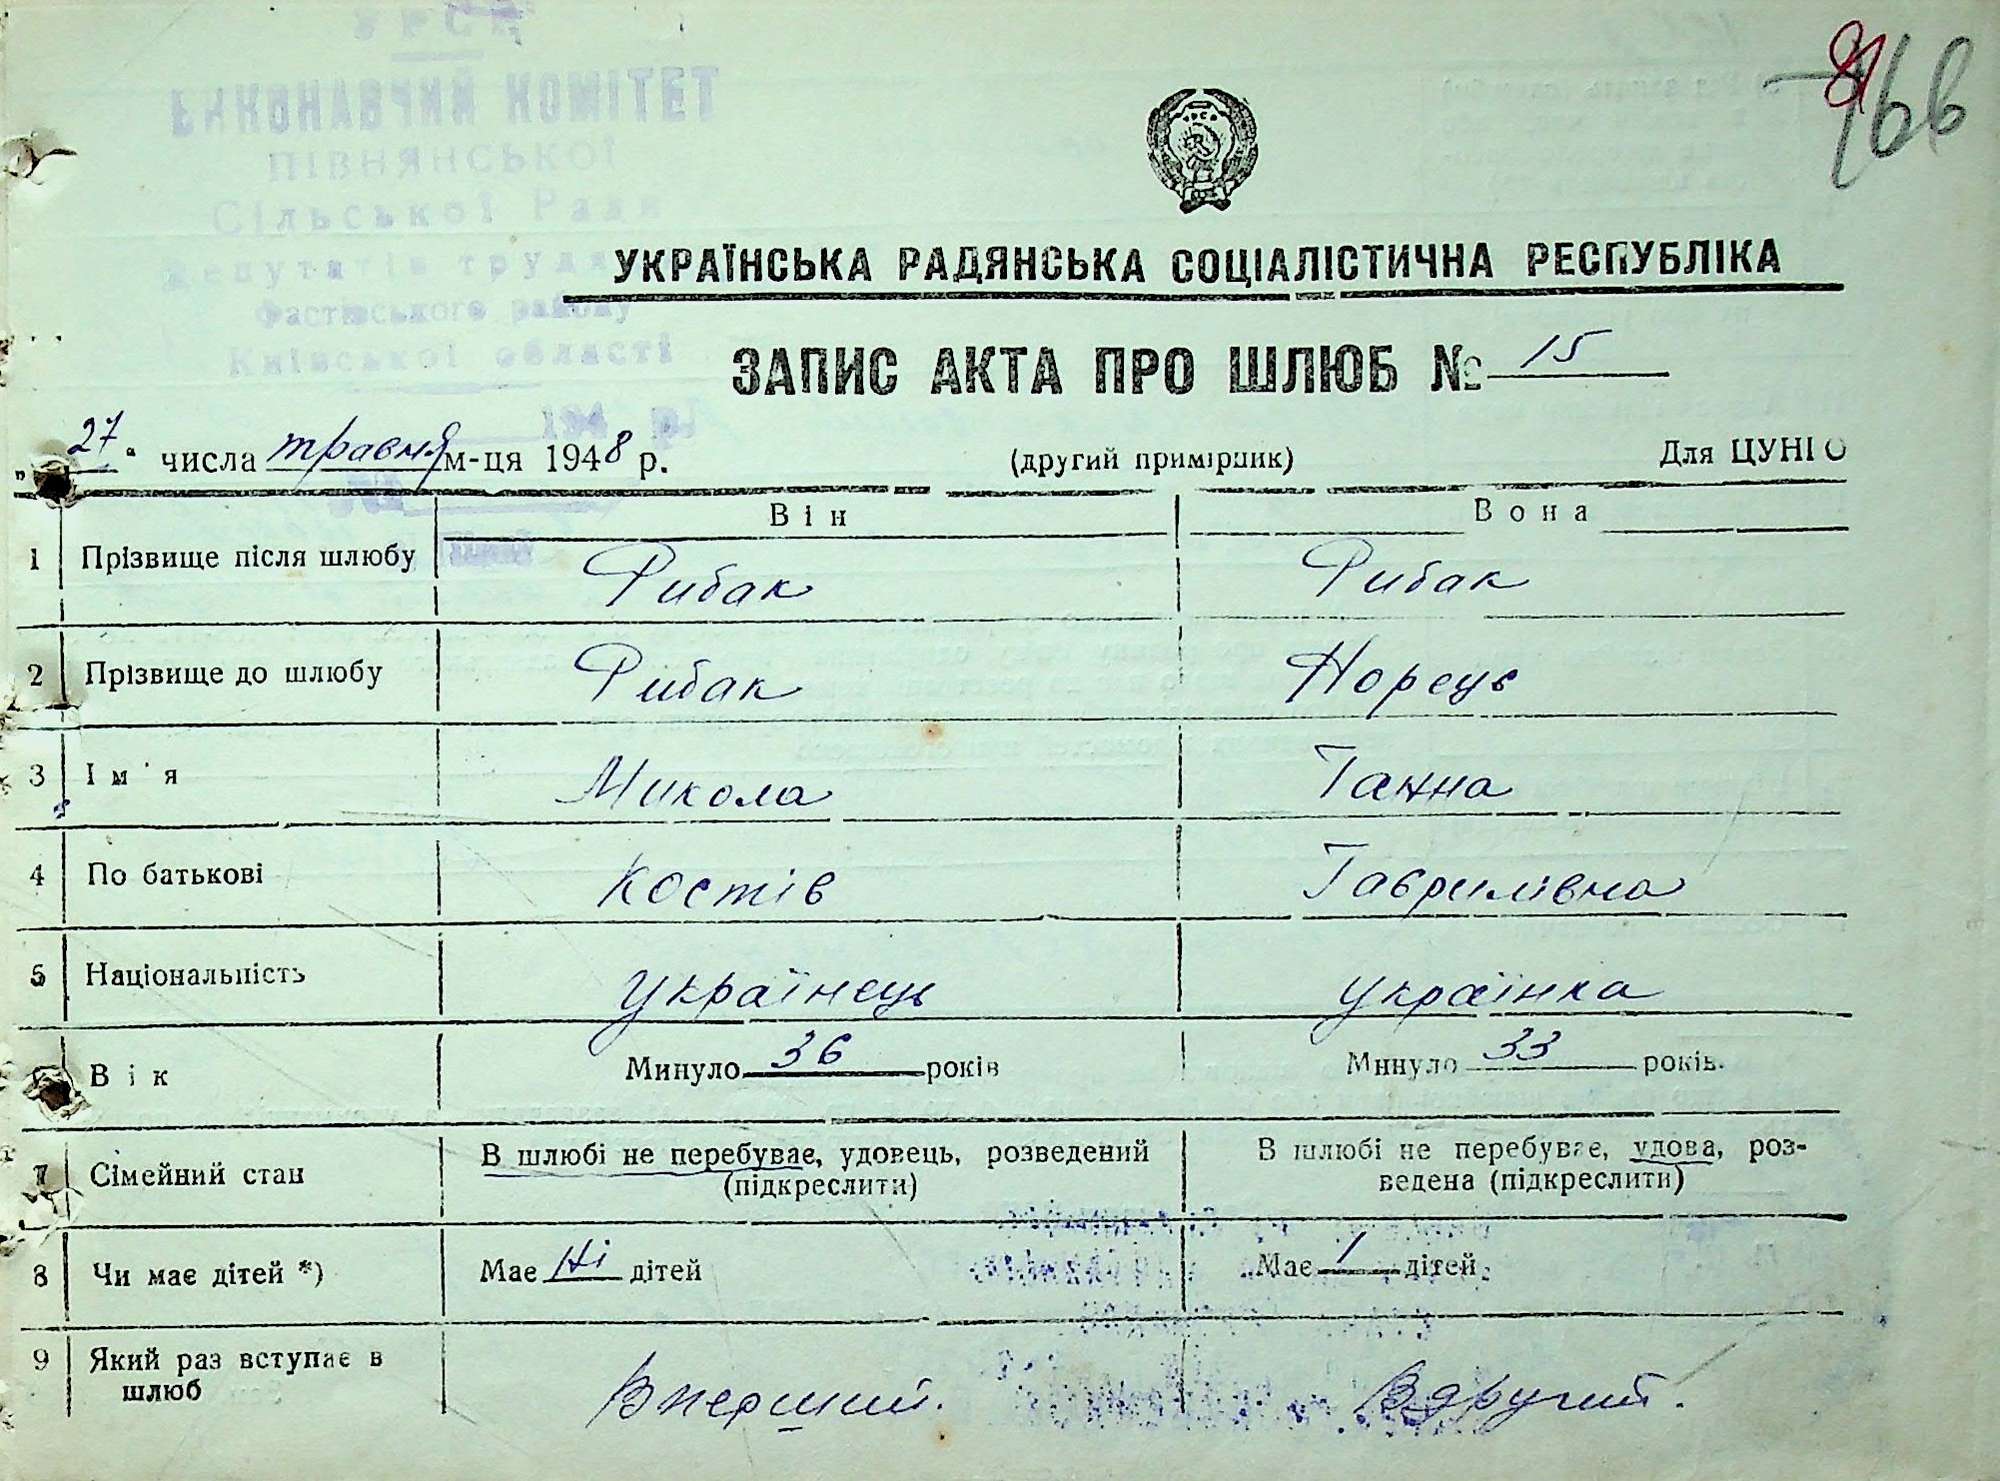 УРСР
ВИКОНАВЧИЙ КОМІТЕТ
ПІВНЯНСЬКОЇ
Сільської Ради
депутатів трудя
Фастівського району
Київської області
194 р.
№
91
166
УКРАЇНСЬКА РАДЯНСЬКА СОЦІАЛІСТИЧНА РЕСПУБЛІКА
ЗАПИС АКТА ПРО ШЛЮБ № 15
„27“ числа травня м-ця 1948 р. (другий примірник) Для ЦУНГО
Він Вона
1 Прізвище після шлюбу Рибак Рибак
2 Прізвище до шлюбу Рибак Норець
3 Ім'я Микола Ганна
4 По батькові Костів Гаврилівна
5 Національність українець українка
Вік Минуло 36 років Минуло 33 років.
7 Сімейний стан В шлюбі не перебуває, удовець, розведений В шлюбі не перебуває, удова, роз-
(підкреслити) ведена (підкреслити)
8 Чи має дітей *) Має Ні дітей Має 1 дітей
9 Який раз вступає в
шлюб Вперший. Вдругий.